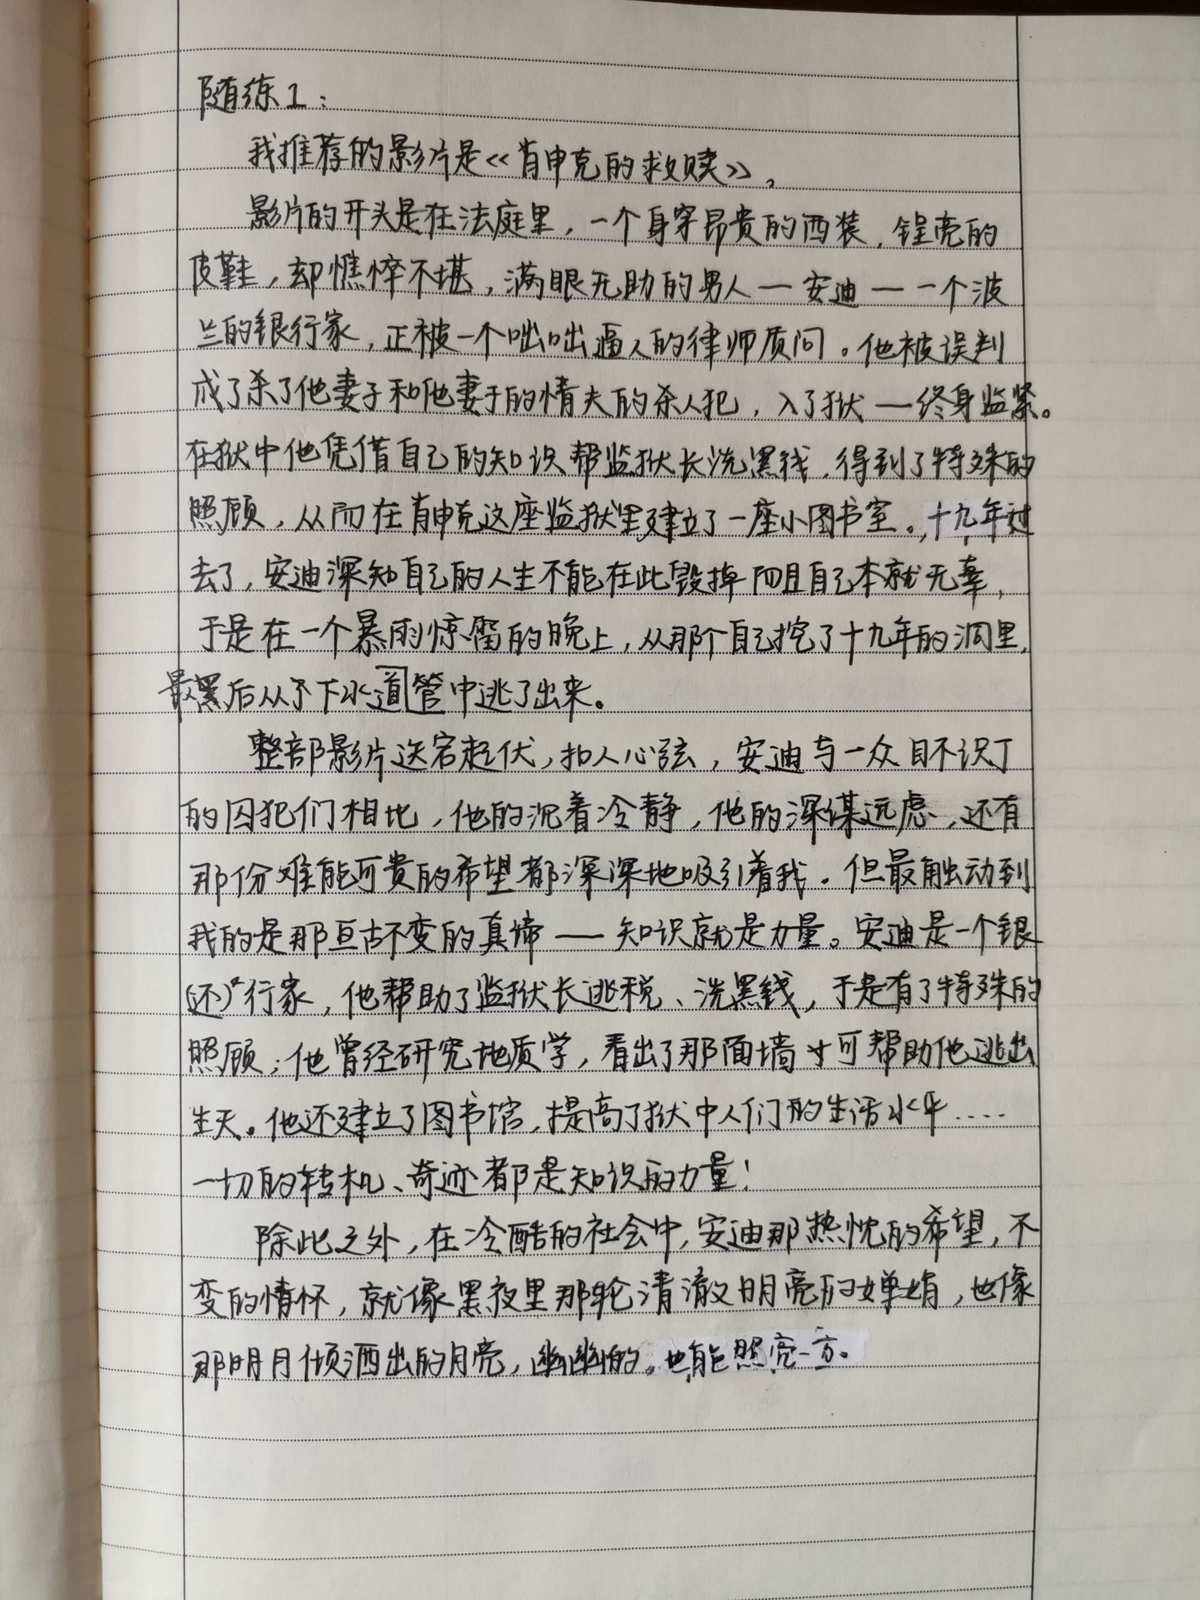 随练1：
我推荐的影片是《肖申克的救赎》。
影片的开头是在法庭里，一个身穿昂贵的西装，锃亮的
皮鞋，却憔悴不堪，满眼无助的男人—安迪—一个波
兰的银行家，正被一个咄咄逼人的律师质问。他被误判
成了杀了他妻子和他妻子的情夫的杀人犯，入了狱—终身监紧。
在狱中他凭借自己的知识帮监狱长洗黑钱，得到了特殊的
照顾，从而在肖申克这座监狱里建立了一座小图书室。十九年过
去了，安迪深知自己的人生不能在此毁掉而且自己本就无辜，
于是在一个暴雨惊雷的晚上，从那个自己挖了十九年的洞里，
最后从下水道管中逃了出来。
整部影片迭宕起伏，扣人心弦，安迪与一众目不识丁
的囚犯们相比，他的沉着冷静，他的深谋远虑，还有
那份难能可贵的希望都深深地吸引着我。但最触动到
我的是那亘古不变的真谛——知识就是力量。安迪是一个银
(还)行家，他帮助了监狱长逃税、洗黑钱，于是有了特殊的
照顾；他曾经研究地质学，看出了那面墙才可帮助他逃出
生天。他还建立了图书馆，提高了狱中人们的生活水平……
一切的转机、奇迹都是知识的力量！
除此之外，在冷酷的社会中，安迪那热忱的希望，不
变的情怀，就像黑夜里那轮清澈明亮的婵娟，也像
那明月倾洒出的月亮，幽幽的。也能照亮一方。